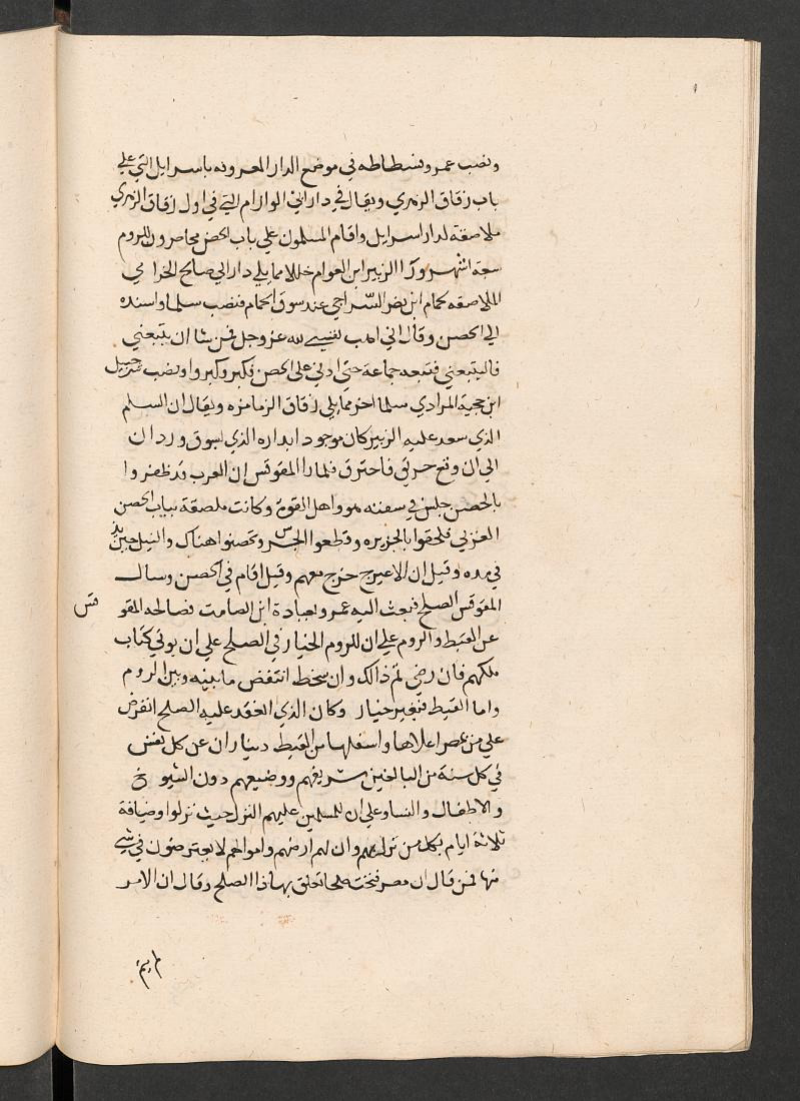 ونصب عمرو فسطاطه في موضع الدار المعروفه باسرايل التي علي
باب زقاق الزهري ويقال في دار ابي الوازام التي في اول زقاق الزهري
ملاصقة لدار اسرايل واقام المسلمون علي باب الحصن محاصرون للروم
سبعة اشهر وراا الزبير ابن العوام خللا مما يلي دار ابي صالح الحرامي
الملاصقه لحمام ابن نصر السراجي عند سوق الحمام فنصب سلما واسنده
الي الحصن وقال اني اهب نفسي لله عز وجل فمن شا ان يتبعني
فاليتبعني فتبعه جماعة حتي ادلي علي الحصن فكبر وكبروا ونصب شرحبيل
ابن حجية المرادي سلما اخر مما يلي زقاق الزمامزه ويقال ان السلم
الذي سعد عليه الزبير كان موجود ابداره الذي بسوق وردان
الي ان وقع حرق فاحترق فلما را المقوقس ان العرب قد ظفروا
بالحصن جلس في سفنه هو واهل القوة وكانت ملصقة بباب الحصن
الغربي فلحقوا بالجزيره وقطعوا الجسر وتحصنوا هناك والنيل حينئذ
في مده وقيل ان الاعيرج خرج معهم وقيل اقام في الحصن وسال
المقوقس الصلح فبعث اليه عمرو بعبادة ابن الصامت فصالحه المقو
قس
عن القبط والروم علي ان للروم الخيار في الصلح علي ان يوتي كتاب
ملكهم فان رضي تم ذالك وان سخط انتقض ما بينه وبين الروم
واما القبط فبغير خيار وكان الذي انعقد عليه الصلح ان فرض
علي من بمصر اعلاها واسفلها من القبط ديناران عن كل نفس
في كل سنة من البالغين شريفهم ووضيعهم دون الشيوخ
والاطفال والنسا وعلي ان للمسلمين عليهم النزل حيث نزلوا وضيافة
ثلاثة ايام لكل من نزل بهم وان لهم ارضهم واموالهم لا يعترضون في شي
منها فمن قال ان مصر فتحت صلحا تعلق بهاذا الصلح وقال ان الامر
لم يتم